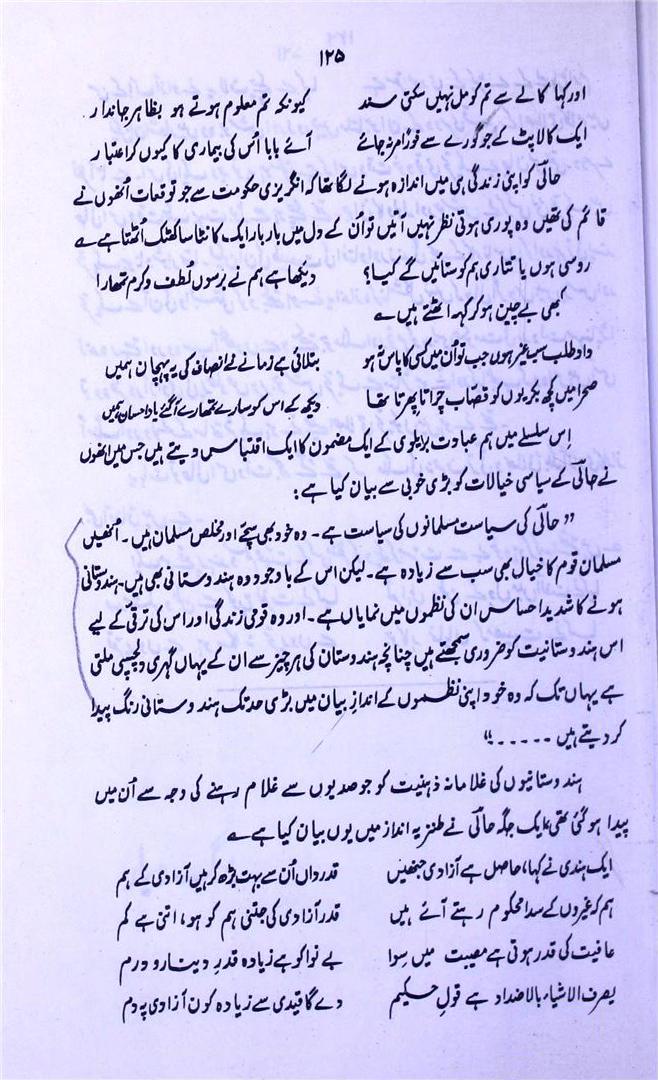 ۱۲۵
اور کہا کالے سے تم کو مل نہیں سکتی سند کیونکہ تم معلوم ہوتے ہو بظاہر جاندار
ایک کالا پٹ کے جو گورے سے فوراً مر نہ جائے آئے بابا اُس کی بیماری کا کیوں کر اعتبار
حالؔی کو اپنی زندگی ہی میں اندازہ ہونے لگا تھا کہ انگریزی حکومت سے جو توقعات اُنھوں نے
قائم کی تھیں وہ پوری ہوتی نظر نہیں آتیں تو اُن کے دل میں بار بار ایک کانٹا سا کھٹک اُٹھتا ہے ؎
روسی ہوں یا تتاری ہم کو ستائیں گے کیا؟ دیکھا ہے ہم نے برسوں لُطف و کرم تمھارا
کبھی بے چین ہو کر کہہ اٹھتے ہیں ؎
داد طلب سب غیر ہوں جب تو اُن میں کسی کا پاس نہ ہو بتلائی ہے زمانے نے انصاف کی یہ پہچان ہمیں
صحرا میں کچھ بکریوں کو قصاب چراتا پھرتا تھا دیکھ کے اس کو سارے تمھارے آ گئے یاد احسان ہمیں
اِس سلسلے میں ہم عبادت بریلوی کے ایک مضمون کا ایک اقتباس دیتے ہیں جس میں انھوں
نے حالؔی کے سیاسی خیالات کو بڑی خوبی سے بیان کیا ہے :
” حالؔی کی سیاست مسلمانوں کی سیاست ہے ۔ وہ خود بھی سچّے اور مخلص مسلمان ہیں ۔ اُنھیں
مسلمان قوم کا خیال بھی سب سے زیادہ ہے ۔ لیکن اس کے باوجود وہ ہندوستانی بھی ہیں ۔ ہندوستانی
ہونے کا شدید احساس ان کی نظموں میں نمایاں ہے ۔ اور وہ قومی زندگی اور اس کی ترقی کے لیے
اس ہندوستانیت کو ضروری سمجھتے ہیں چنانچہ ہندوستان کی ہر چیز سے ان کے یہاں گہری دلچسپی ملتی
ہے یہاں تک کہ وہ خود اپنی نظموں کے اندازِ بیان میں بڑی حد تک ہندوستانی رنگ پیدا
کر دیتے ہیں ۔۔۔۔۔ “
ہندوستانیوں کی غلامانہ ذہنیت کو جو صدیوں سے غلام رہنے کی وجہ سے اُن میں
پیدا ہو گئی تھی، ایک جگہ حالؔی نے طنزیہ انداز میں یوں بیان کیا ہے ؎
ایک ہندی نے کہا، حاصل ہے آزادی جنھیں قدرداں اُن سے بہت بڑھ کر ہیں آزادی کے ہم
ہم کہ غیروں کے سدا محکوم رہتے آئے ہیں قدر آزادی کی جتنی ہم کو ہو، اتنی ہے کم
عافیت کی قدر ہوتی ہے مصیبت میں سوا بے نوا کو ہے زیادہ قدرِ دینار و درم
یصرف الاشیاء بالاضداد ہے قولِ حکیم دے گا قیدی سے زیادہ کون آزادی پہ دم